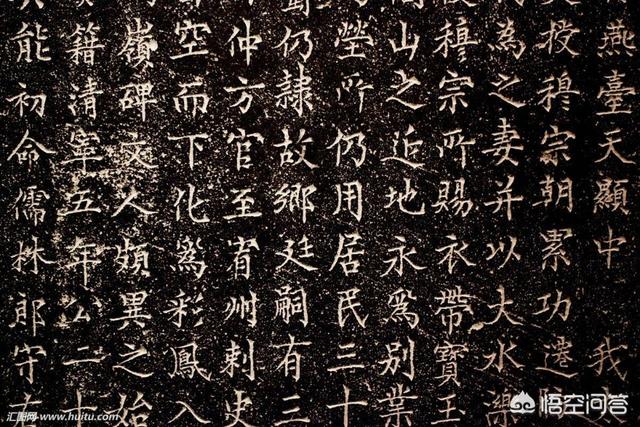 燕臺天顯中 我
授穆宗朝累功遷
為之妻并以大水濼
穆宗所賜衣帶寶玉
山之近地永爲別業
塋所仍用居民三十
仍隸故鄉廷嗣有三
仲方官至省州刺史
空而下化爲彩鳳入
嶺碑文人頗異之
籍清寧五年公二十
能初命儒林郎守
汇图网 www.huitu.com
悟空问答